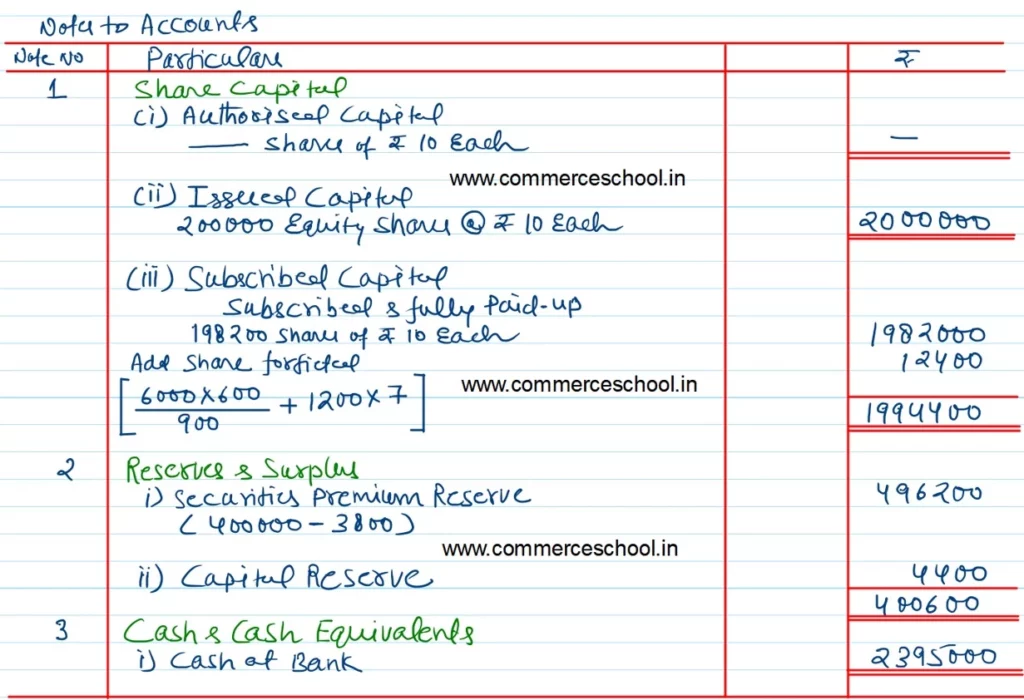 Notes to Accounts
Note No Particulars ₹
1 Share Capital
(i) Authorised Capital
—— Shares of ₹ 10 Each —
www.commerceschool.in
(ii) Issued Capital
200000 Equity Share @ ₹ 10 Each 2000000
(iii) Subscribed Capital
Subscribed & fully Paid-up
198200 Shares of ₹ 10 Each 1982000
Add Share forficted 12400
[6000×600/900 + 1200×7] 1994400
www.commerceschool.in
2 Reserves & Surplus
i) Securities Premium Reserve 496200
(400000 - 3800)
www.commerceschool.in
ii) Capital Reserve 4400
400600
3 Cash & Cash Equivalents
i) Cash at Bank 2395000